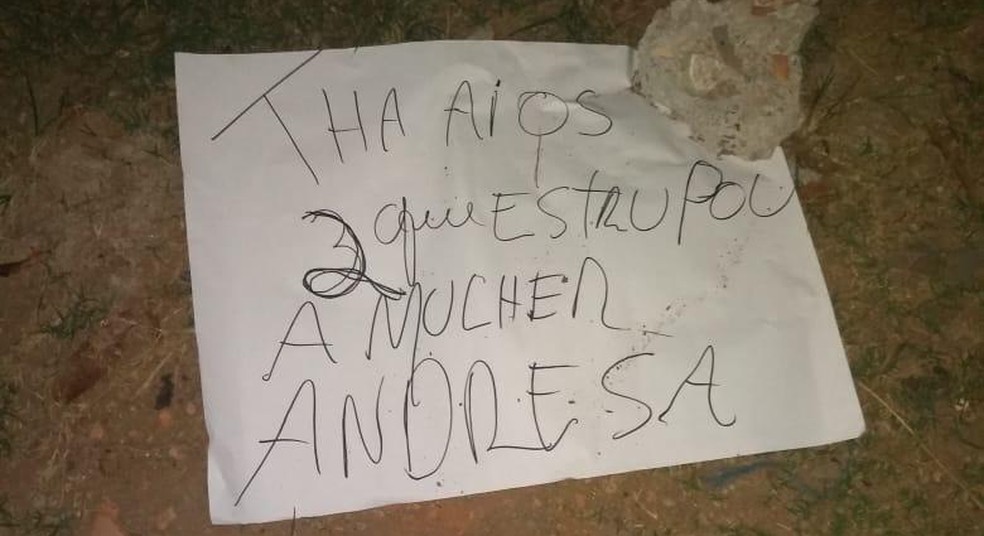 THA AI OS
2 que ESTRUPOU
A MULHER
ANDRESA